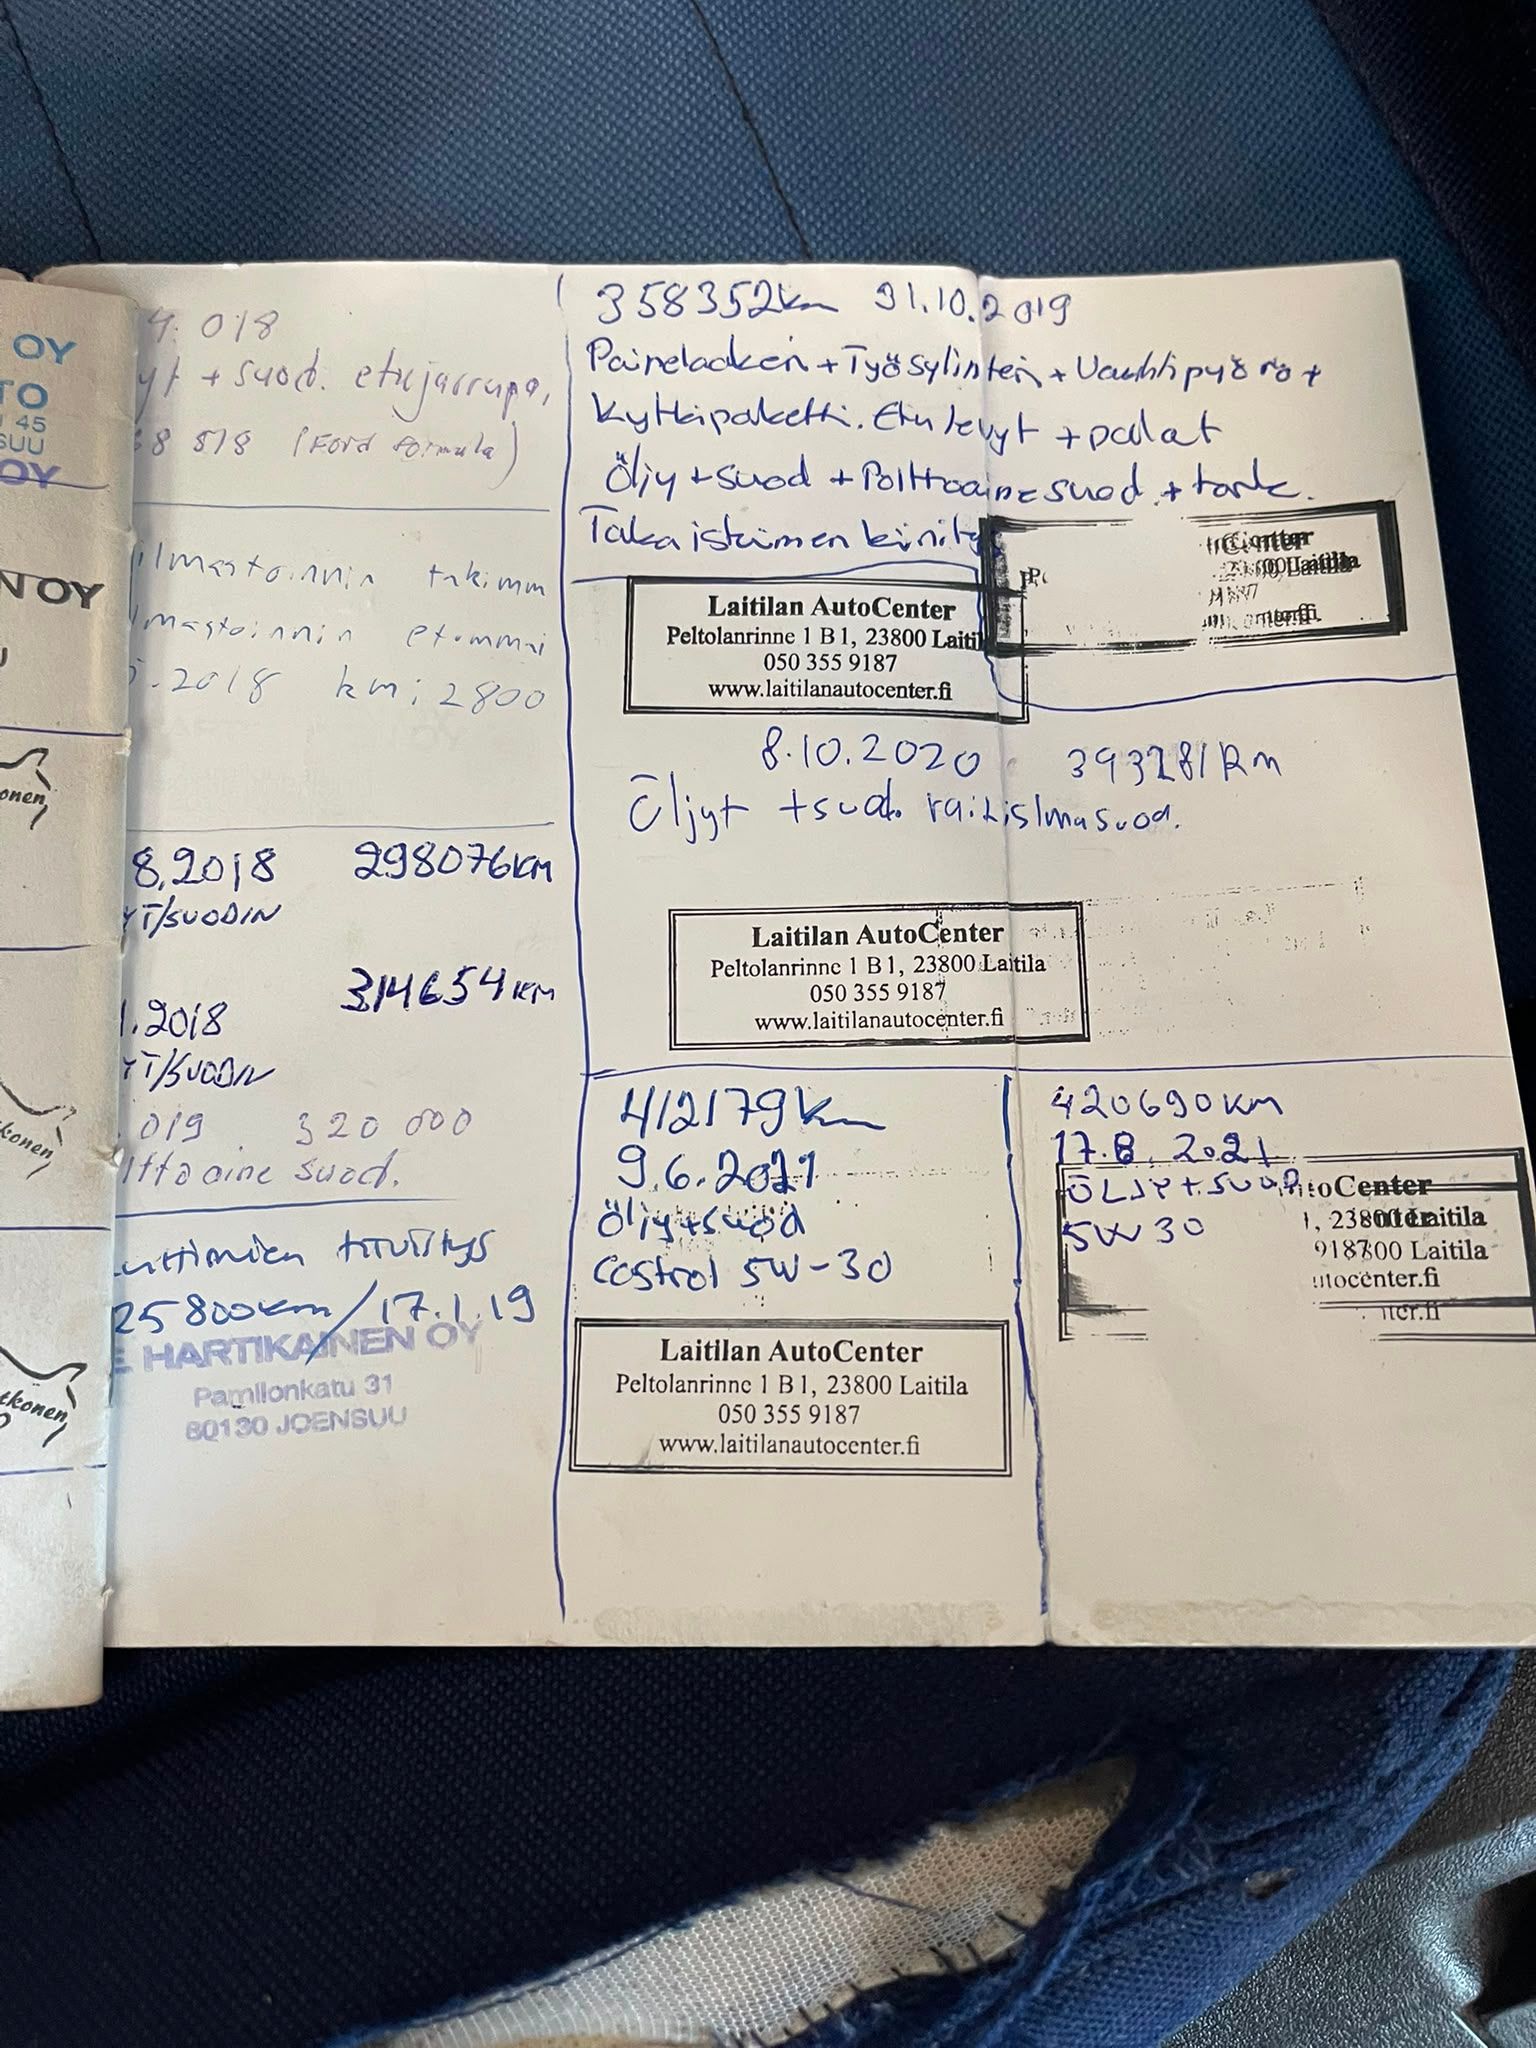 OY
TO
45
SUU
OY
N OY
onen
konen
tkonen
4. 018
yt + suod. etujarrupa,
38 818 (Ford formula)
ilmastoinnin
mastoinnin
.2018 km: 2800
8.2018 298076KM
YT/SUODIN
314654KM
1.2018
YT/SUODIN
019 320 000
ttoaine suod.
tiivistys
25800km/17.1.19
E HARTIKAINEN OY
Pamilonkatu 31
80130 JOENSUU
358352km 31.10.2019
Painelaakeri + Työsylinteri + Vauhtipyörä +
Kytkinpaketti. Etu levyt + palat
Öljy + suod + Polttoainesuod. + tark.
Taka iskimen kiinitys
Laitilan AutoCenter
Peltolanrinne 1 B 1, 23800 Laitila
050 355 9187
www.laitilanautocenter.fi
Center
Laitila
8.10.2020 393281km
Öljyt + suod. raitisilmasuod.
Laitilan AutoCenter
Peltolanrinne 1 B 1, 23800 Laitila
050 355 9187
www.laitilanautocenter.fi
412179km
9.6.2021
Öljy+suod
Castrol 5W-30
Laitilan AutoCenter
Peltolanrinne 1 B 1, 23800 Laitila
050 355 9187
www.laitilanautocenter.fi
420690KM
17.8.2021
ÖLJY+SUOD
5W30
toCenter
1, 23800 Laitila
9187 00 Laitila
utocenter.fi
ter.fi